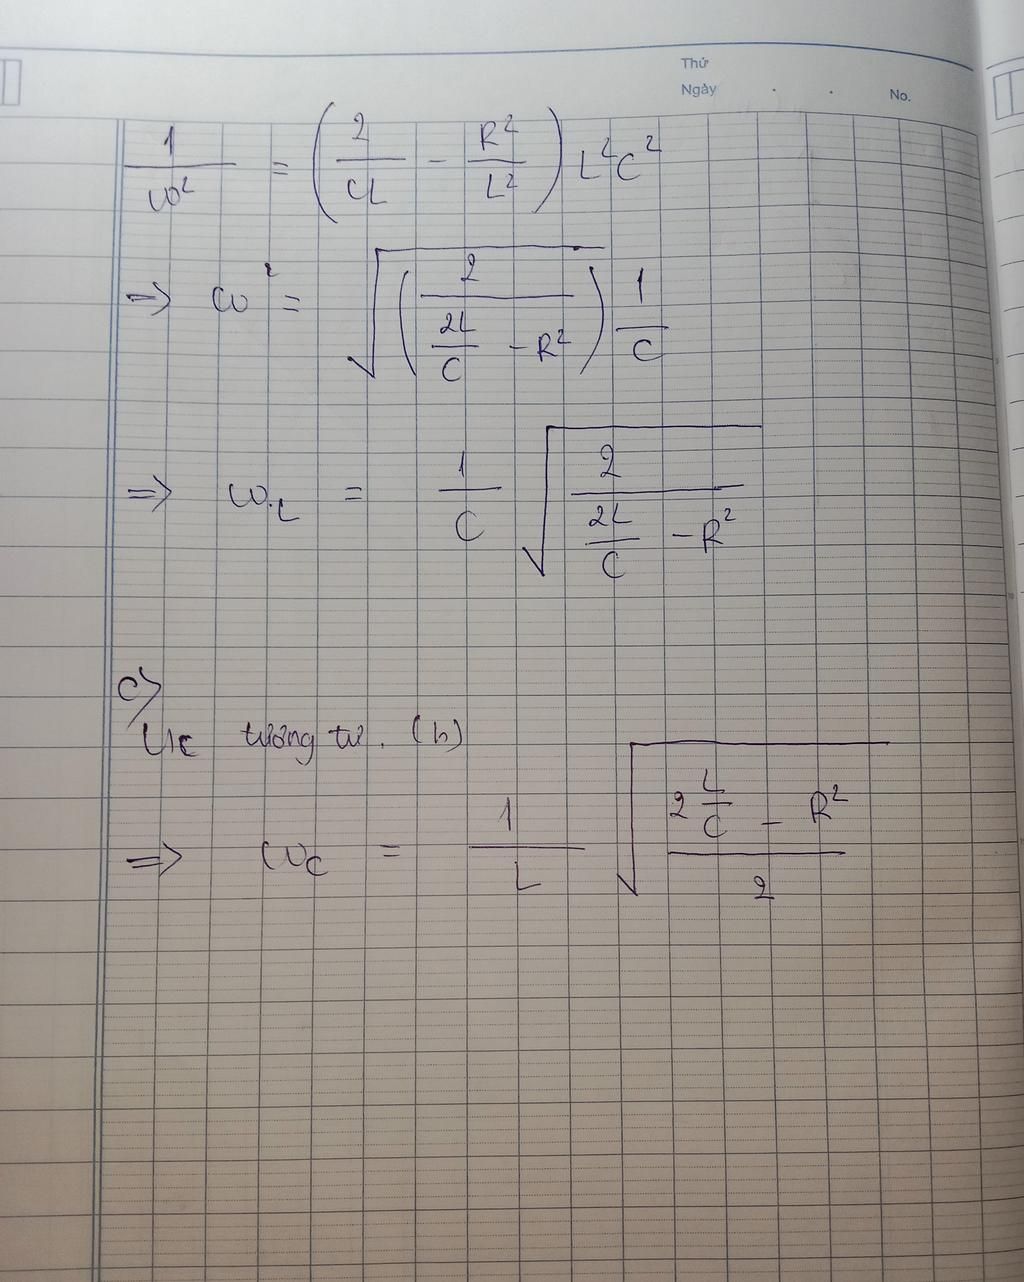 Thứ
Ngày . . No.
1/ω² = (2/CL - R²/L²) L²C²
=> ω² = √(2/(2L/C - R²)) 1/C
=> ω_L = 1/C √(2/(2L/C - R²))
c)
tương tự. (b)
=> ω_C = 1/L √((2 L/C - R²)/2)